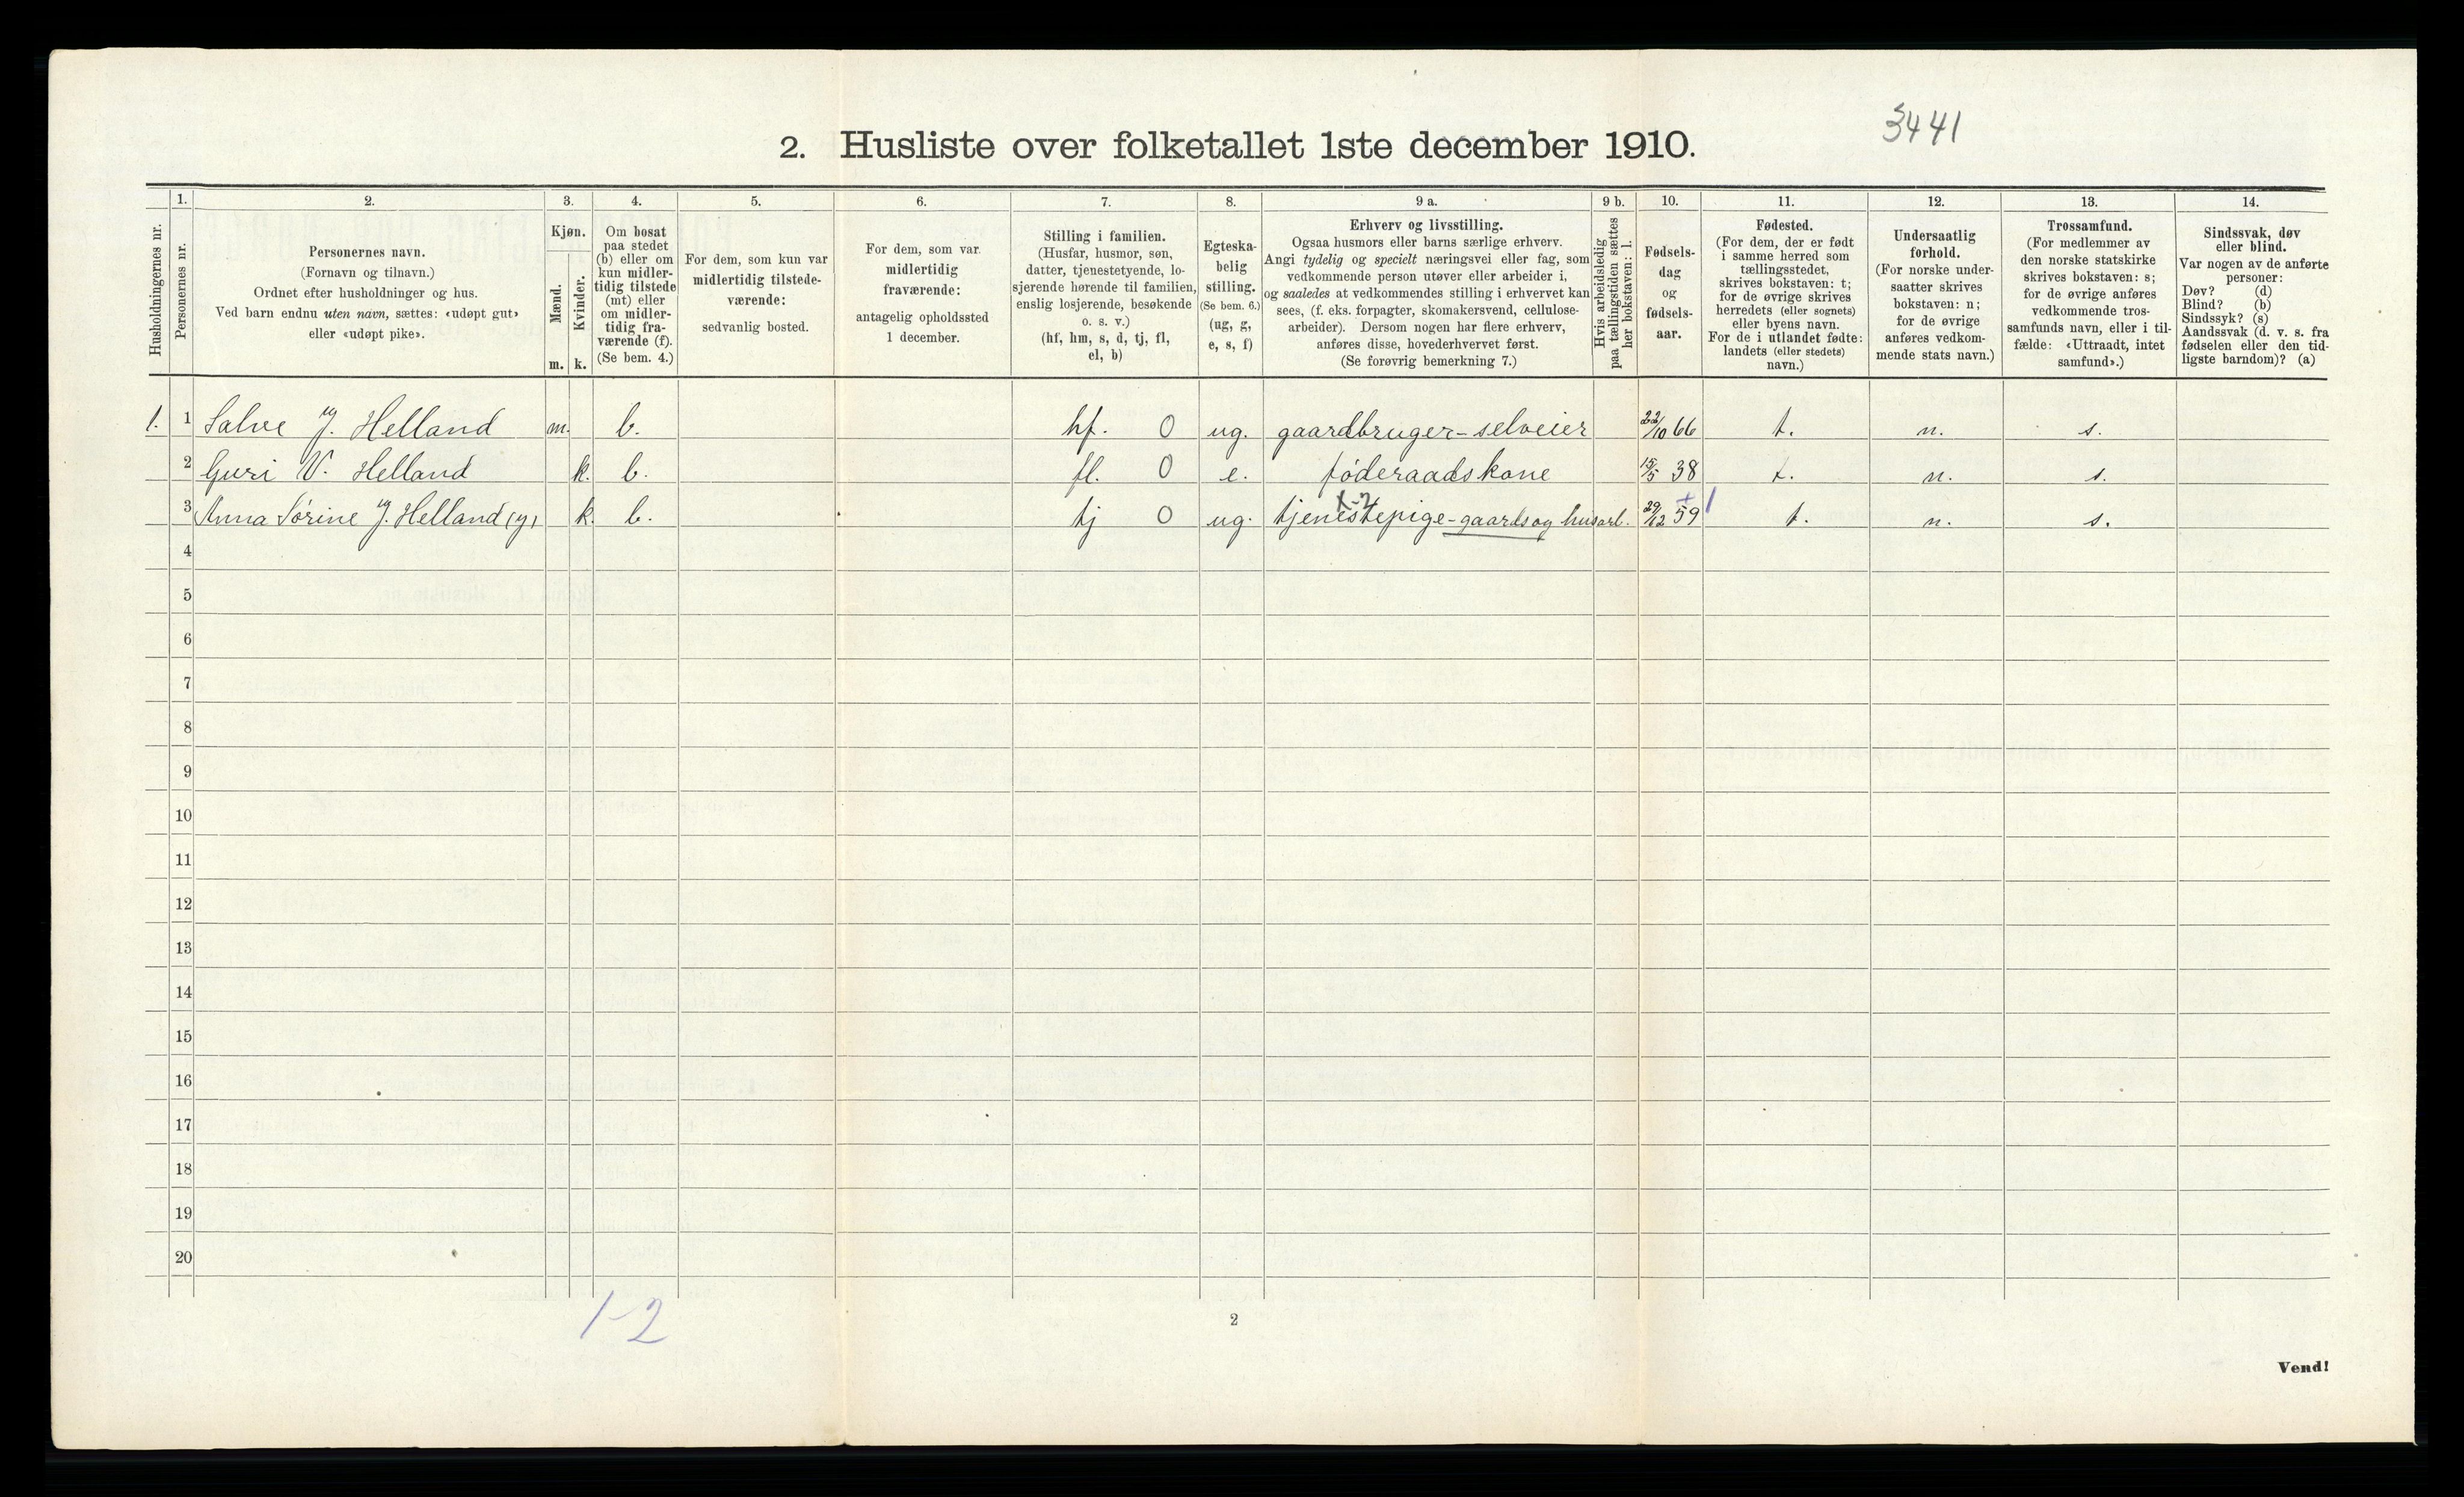 3441
2. Husliste over folketallet 1ste december 1910.
1. 2. 3. 4. 5. 6. 7. 8. 9 a. 9 b. 10. 11. 12. 13. 14.
Husholdningernes nr.
Personernes nr.
Personernes navn.
(Fornavn og tilnavn.)
Ordnet efter husholdninger og hus.
Ved barn endnu uten navn, sættes: «udøpt gut»
eller «udøpt pike».
Kjøn.
Mænd.
Kvinder.
m. k.
Om bosat
paa stedet
(b) eller om
kun midler-
tidig tilstede
(mt) eller
om midler-
tidig fra-
værende (f).
(Se bem. 4.)
For dem, som kun var
midlertidig tilstede-
værende:
sedvanlig bosted.
For dem, som var
midlertidig
fraværende:
antagelig opholdssted
1 december.
Stilling i familien.
(Husfar, husmor, søn,
datter, tjenestetyende, lo-
sjerende hørende til familien,
enslig losjerende, besøkende
o. s. v.)
(hf, hm, s, d, tj, fl,
el, b)
Egteska-
belig
stilling.
(Se bem. 6.)
(ug, g,
e, s, f)
Erhverv og livsstilling.
Ogsaa husmors eller barns særlige erhverv.
Angi tydelig og specielt næringsvei eller fag, som
vedkommende person utøver eller arbeider i,
og saaledes at vedkommendes stilling i erhvervet kan
sees, (f. eks. forpagter, skomakersvend, cellulose-
arbeider). Dersom nogen har flere erhverv,
anføres disse, hovederhvervet først.
(Se forøvrig bemerkning 7.)
Hvis arbeidsledig
paa tællingstiden sættes
her bokstaven: l.
Fødsels-
dag
og
fødsels-
aar.
Fødested.
(For dem, der er født
i samme herred som
tællingsstedet,
skrives bokstaven: t;
for de øvrige skrives
herredets (eller sognets)
eller byens navn.
For de i utlandet fødte:
landets (eller stedets)
navn.)
Undersaatlig
forhold.
(For norske under-
saatter skrives
bokstaven: n;
for de øvrige
anføres vedkom-
mende stats navn.)
Trossamfund.
(For medlemmer av
den norske statskirke
skrives bokstaven: s;
for de øvrige anføres
vedkommende tros-
samfunds navn, eller i til-
fælde: «Uttraadt, intet
samfund».)
Sindssvak, døv
eller blind.
Var nogen av de anførte
personer:
Døv? (d)
Blind? (b)
Sindssyk? (s)
Aandssvak (d. v. s. fra
fødselen eller den tid-
ligste barndom)? (a)
1. 1 Salve J. Helland m. b. hf. 0 ug. gaardbruger-selveier 22/10 66 t. n. s.
2 Guri V. Helland k. b. fl. 0 e. føderaadskone 15/5 38 t. n. s.
3 Anna Sørine J. Helland (y) k. b. tj 0 ug. tjenestepige-gaards og husarb. 29/12 59 t. n. s.
4
5
6
7
8
9
10
11
12
13
14
15
16
17
18
19
20
1-2
2
Vend!